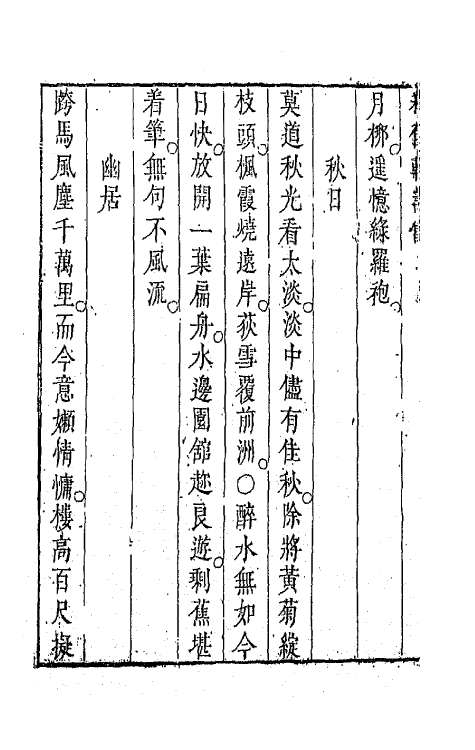 月梛遥憶綠羅袍
秋日
莫道秋光看太淡淡中儘有佳秋除將黃菊綻
枝頭楓霞燒遠岸荻雪覆前洲○醉水無如今
日快放開一葉扁舟水邊園舘趂良遊剩蕉堪
着筆無句不風流
幽居
跨馬風塵千萬里而今意嬾情慵樓高百尺擬